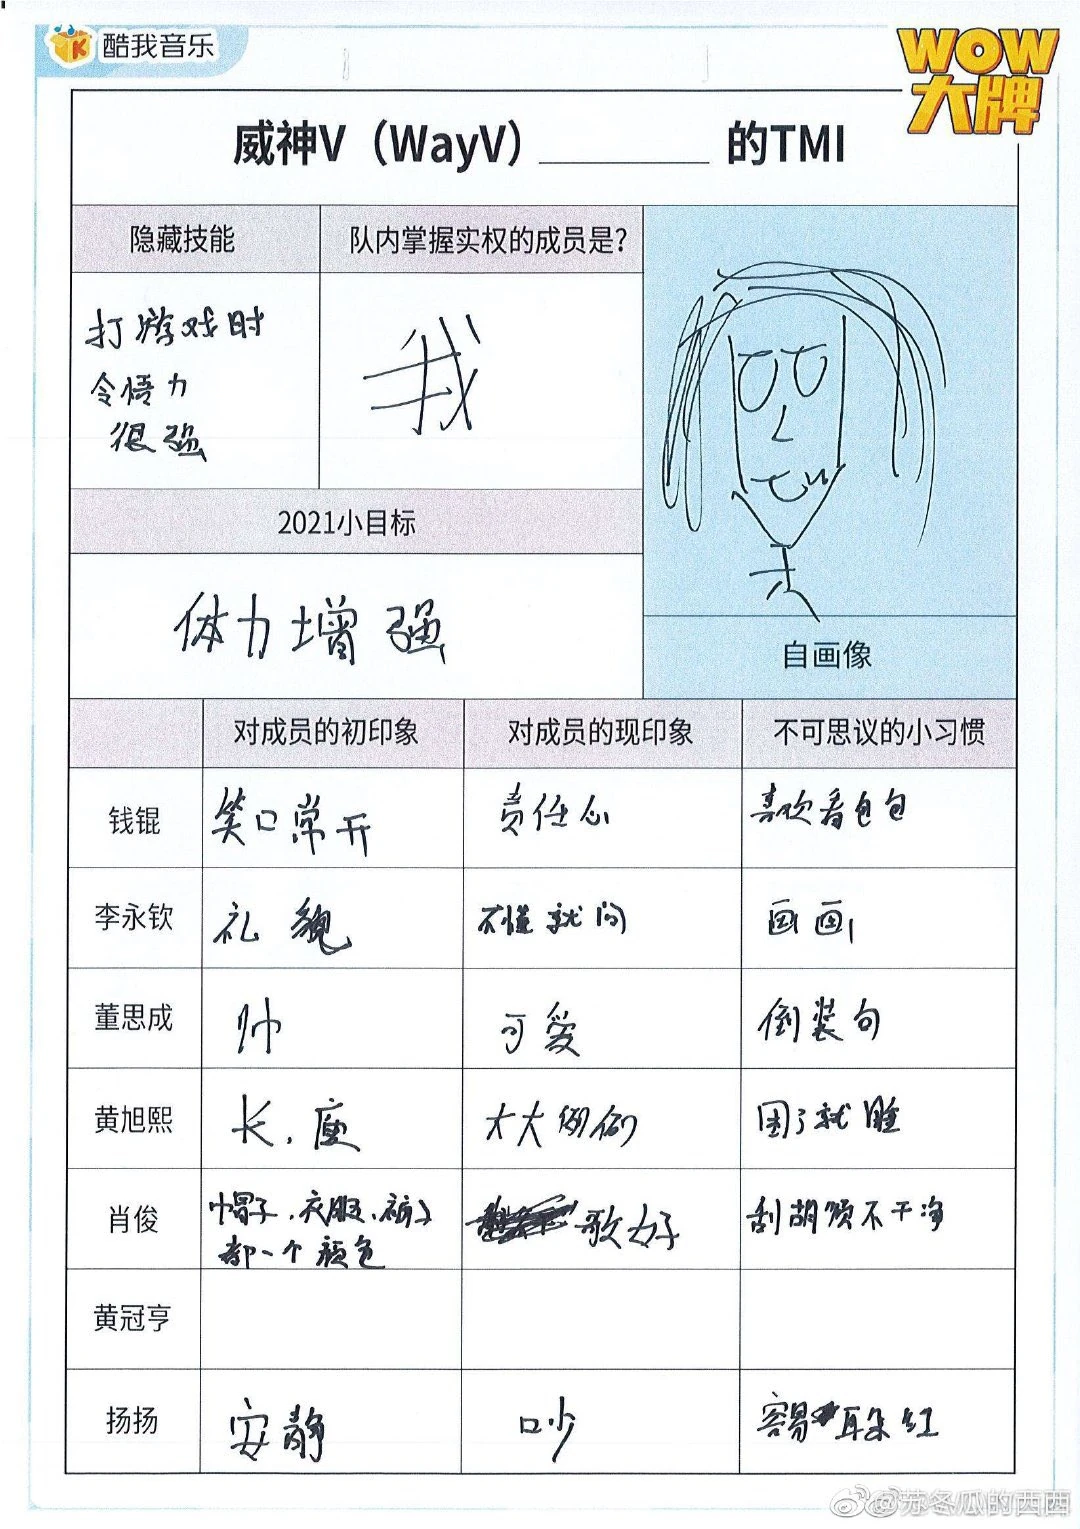 酷我音乐
WOW
大牌
威神V（WayV）________ 的TMI
隐藏技能
队内掌握实权的成员是？
打游戏时
令悟力
很强
我
2021小目标
体力增强
自画像
对成员的初印象 对成员的现印象 不可思议的小习惯
钱锟 笑口常开 责任心 喜欢看包包
李永钦 礼貌 不懂就问 画画
董思成 帅 可爱 倒装句
黄旭熙 长，瘦 大大咧咧 困了就睡
肖俊 帽子、衣服、裤子 歌好 刮胡须不干净
都一个颜色
黄冠亨
扬扬 安静 吵 容易耳朵红
@苏冬瓜的西西